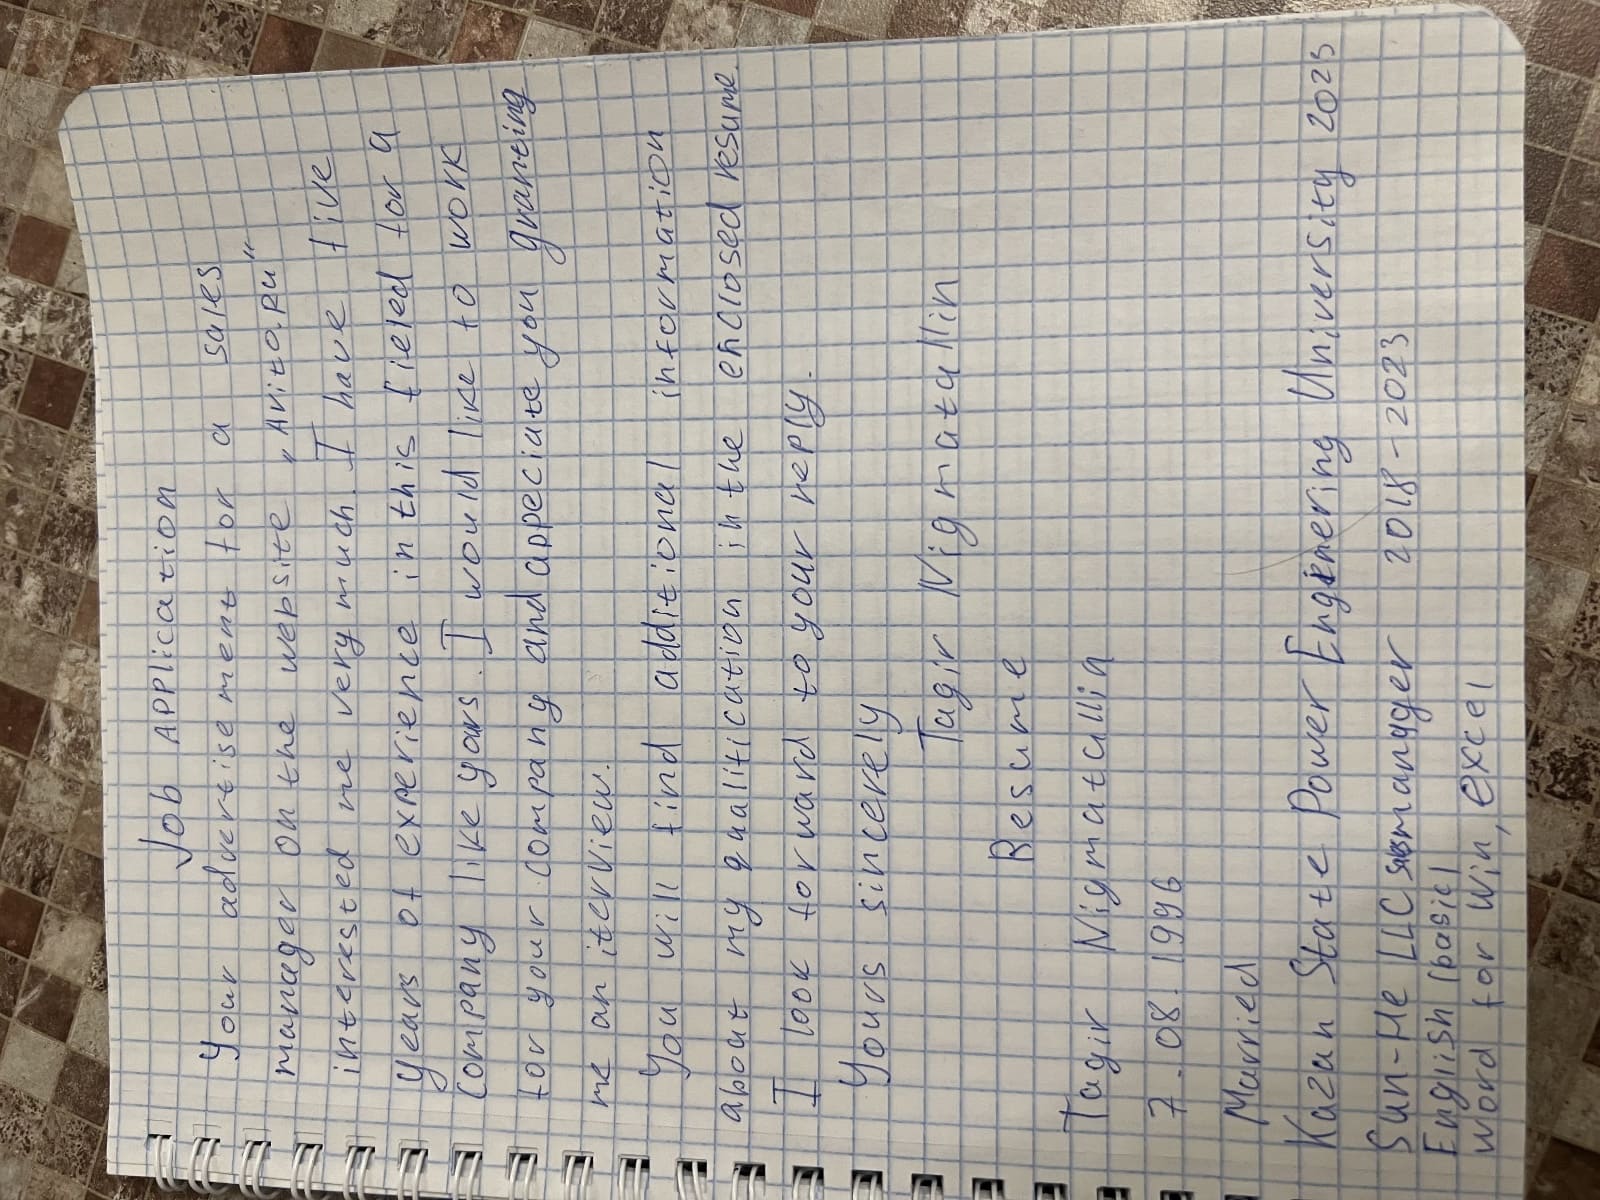 Job APPlication
Your advertisement for a sales
manager on the website „Avito.ru"
interested me very much. I have five
years of experience in this fieled for a
company like yours. I would like to work
for your company and appeciate you granteing
me an iterview.
You will find additional information
about my qualification in the enclosed resume.
I look forward to your reply.
Yours sincerely
Tagir Nigmatallin
Resume
Tagir Nigmatullin
7.08.1996
Married
Kazan State Power Enginering University 2023
Sun-He LLC salesmanager 2018-2023
English (basic)
word for win, excel